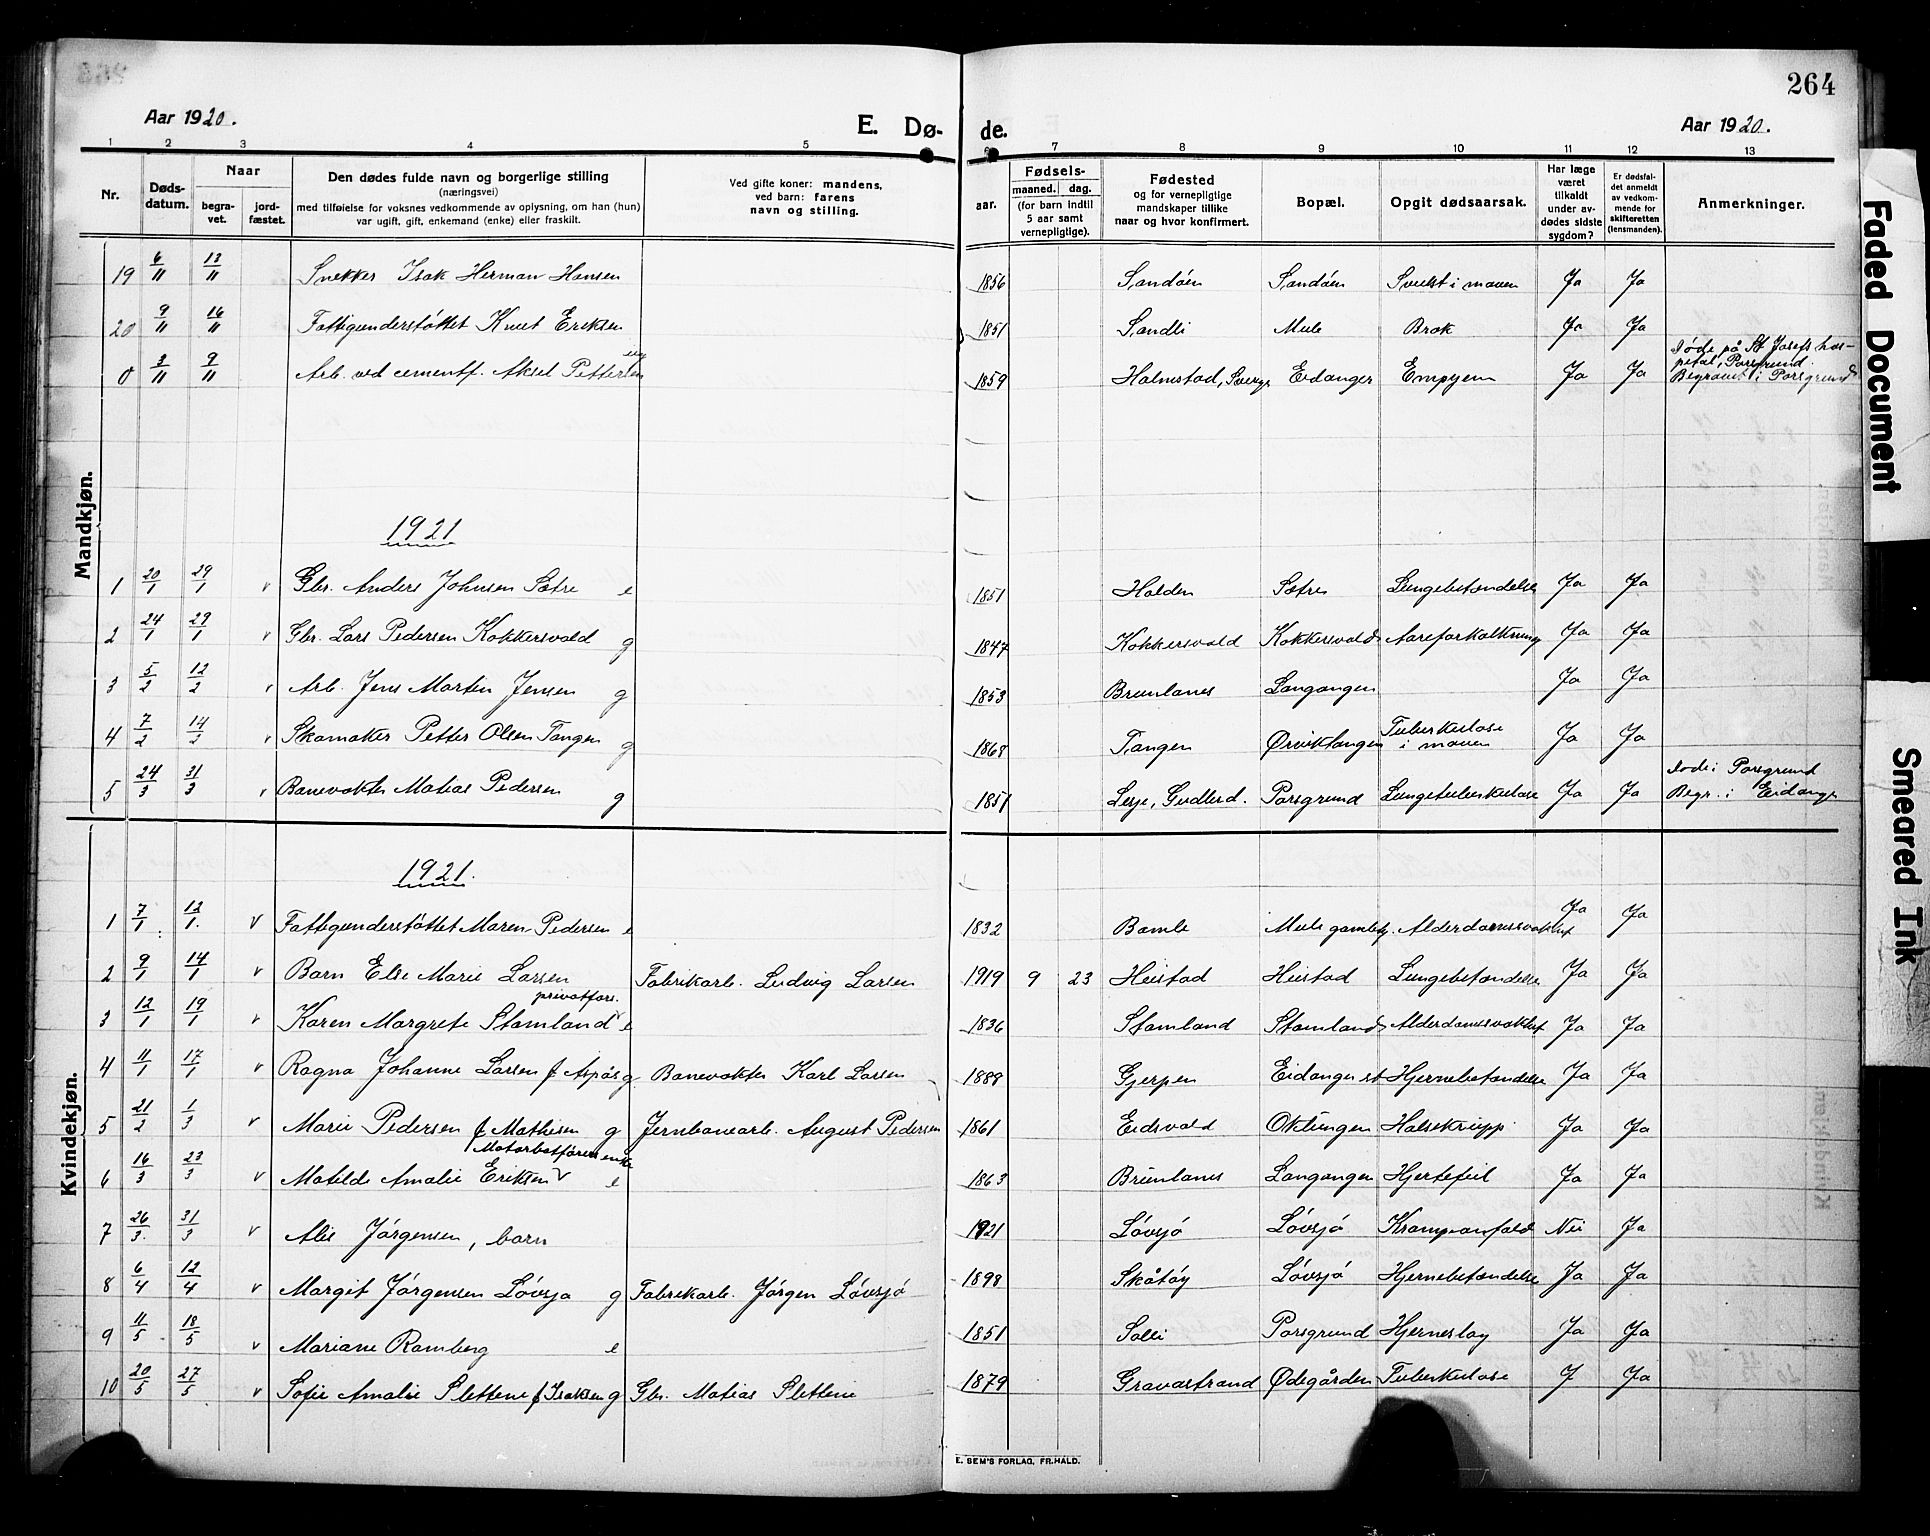 264
Aar 1920.
E. Dø-
de.
Aar 1920.
1 2 3 4 5 6 7 8 9 10 11 12 13
Nr.
Døds-
datum.
Naar
begra-
vet.
jord-
fæstet.
Den dødes fulde navn og borgerlige stilling
(næringsvei)
med tilføielse for voksnes vedkommende av oplysning, om han (hun)
var ugift, gift, enkemand (enke) eller fraskilt.
Ved gifte koner: mandens,
ved barn: farens
navn og stilling.
aar.
Fødsels-
maaned. dag.
(for barn indtil
5 aar samt
vernepligtige).
Fødested
og for vernepligtige
mandskaper tillike
naar og hvor konfirmert.
Bopæl.
Opgit dødsaarsak.
Har læge
været
tilkaldt
under av-
dødes sidste
sygdom?
Er dødsfal-
det anmeldt
av vedkom-
mende for
skifteretten
(lensmanden).
Anmerkninger.
Mandkjøn.
19 6/11 13/11 Snekker Isak Herman Hansen 1856 Sandøen Sandøen Svulst i maven Ja Ja
20 9/11 16/11 Fattigunderstøttet Knut Eriksen 1851 Sandli Mule Brok Ja Ja
0 3/11 9/11 Arb. ved cementf. Aksel Pettersen 1859 Halmstad, Sverge Eidanger Empyem Ja Ja Døde på St Josefs hos-
pital, Porsgrund.
Begravet i Porsgrund
1921
1 20/1 29/1 v Gbr. Anders Johnsen Sætre e 1851 Holden Sætre Lungebetændelse Ja Ja
2 24/1 29/1 v Gbr. Lars Pedersen Kokkersvold g 1847 Kokkersvold Kokkersvold Aareforkalkning Ja Ja
3 5/2 12/2 v Arb. Jens Martin Jensen g 1853 Brunlanes Langangen Ja Ja
4 7/2 14/2 v Skomaker Petter Olsen Tangen g 1868 Tangen Ørviktangen Tuberkulose
i maven Ja Ja
5 24/3 31/3 v Banevokter Matias Pedersen g 1851 Lesje, Gudbrd. Porsgrund Lungetuberkulose Ja Ja Død i Porsgrund
Begr. i Eidanger
Kvindekjøn.
1921.
1 7/1 12/1. v Fattigunderstøttet Maren Pedersen e 1832 Bamle Mule gamleh. Alderdomssvakhet Ja Ja
2 9/1 14/1 v Barn Else Marie Larsen Fabrikarb. Ludvig Larsen 1919 9 23 Heistad Heistad Lungebetændelse Ja Ja
3 12/1 19/1 v Karen Margrete Stamland privatfors. e 1836 Stamland Stamland Alderdomssvakhet Ja Ja
4 11/1 17/1 v Ragna Johanne Larsen f Aspås g Banevokter Karl Larsen 1888 Gjerpen Eidanger st Hjernebetændelse Ja Ja
5 21/2 1/3 v Marie Pedersen f Mathisen g Jernbanearb. August Pedersen 1861 Eidsvold Oklungen Halsekrupp. Ja Ja
6 16/3 23/3 v Matilde Amalie Eriksen Motorbatførerenke e 1863 Brunlanes Langangen Hjertefeil Ja Ja
7 26/3. 31/3 v Alis Jørgensen, barn 1921 Løvsjø Løvsjø Krampeanfald Nei Ja
8 6/4 12/4 v Margit Jørgensen Løvsjø g Fabrikarb. Jørgen Løvsjø 1898 Skåtøy Løvsjø Hjernebetændelse Ja Ja
9 11/5 18/5 v Mariane Ramberg e 1851 Solli Porsgrund Hjerneslag Ja Ja
10 20/5 27/5 v Sofie Amalie Slettene f Isaksen g Gbr. Matias Slettene 1879 Gravastrand Ødegården Tuberkulose J Ja
E. SEM'S FORLAG, FR.HALD.
Faded Document
Smeared Ink